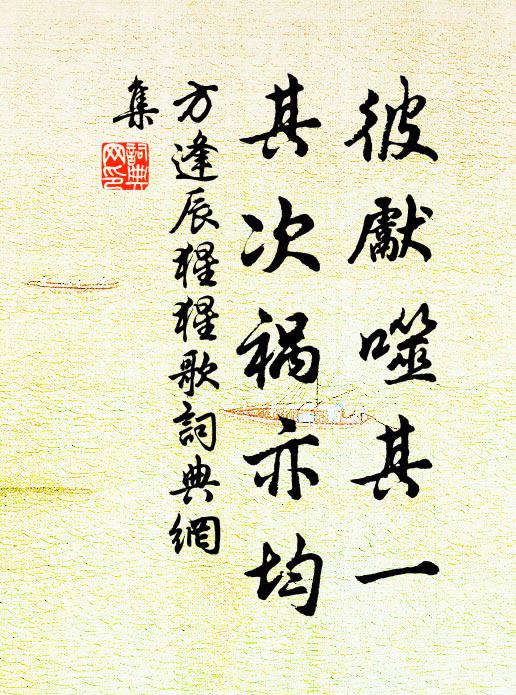 彼獻噬其一
其次禍亦均
方逢辰猩猩歌詞典網
集
詞典網印